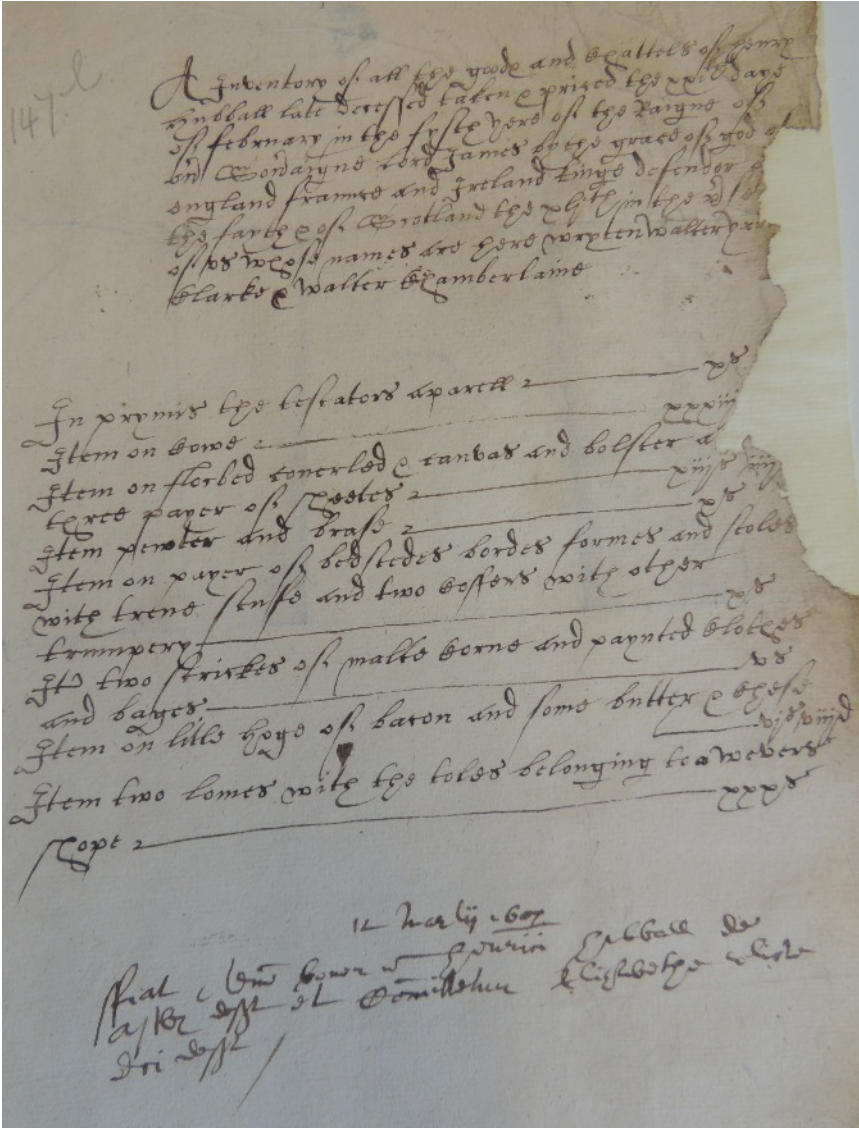 147
A Inventory of all the goods and Chattels of henry
Hubball late decessed taken & prised the xxi daye
of february in the fyfte yere of the Raigne of
our Soveraigne lord James by the grace of god of
england fraunce and Ireland kinge defendor
the fayth & of Scotland the xljth in the
of us whose names are here wryten walter
Clarke & walter Chamberlaine
In prymis the testators aparell xs
Item on Cowe xxxiij
Item on flocbed coverled & canvas and bolster a
three payer of sheetes xiijs iiij
Item pewter and brase xs
Item on payer of bedstedes bordes formes and stoles
with trene stuffe and two Coffers with other
trumpery xs
Ite two strickes of malte Corne and paynted Clothes
and bages vs
Item on litle hoge of bacon and some butter & Chese
vjs viijd
Item two lomes with the toles belonging to a wevers
shope xxxs
12 Martij 1607
ffiat bonor henrici hubball de
defst et Comittetur Elizabethe relicte
dci defst